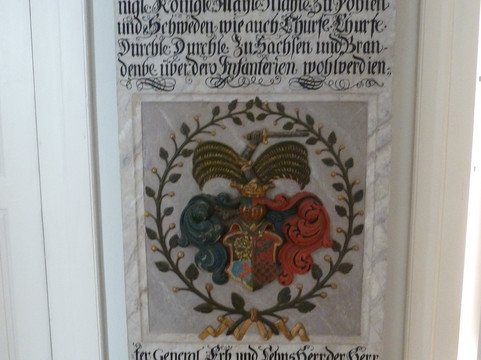 nigle. Königle Maÿle. Maÿle. Zu Pohlen
und Schweden, wie auch Churfe. Churfe.
Durchle. Durchle. Zu Sachsen und Bran-
denbe. über dero Infanterien, wohlverdien-
ter General, Erb und Lehns Herr der Herr